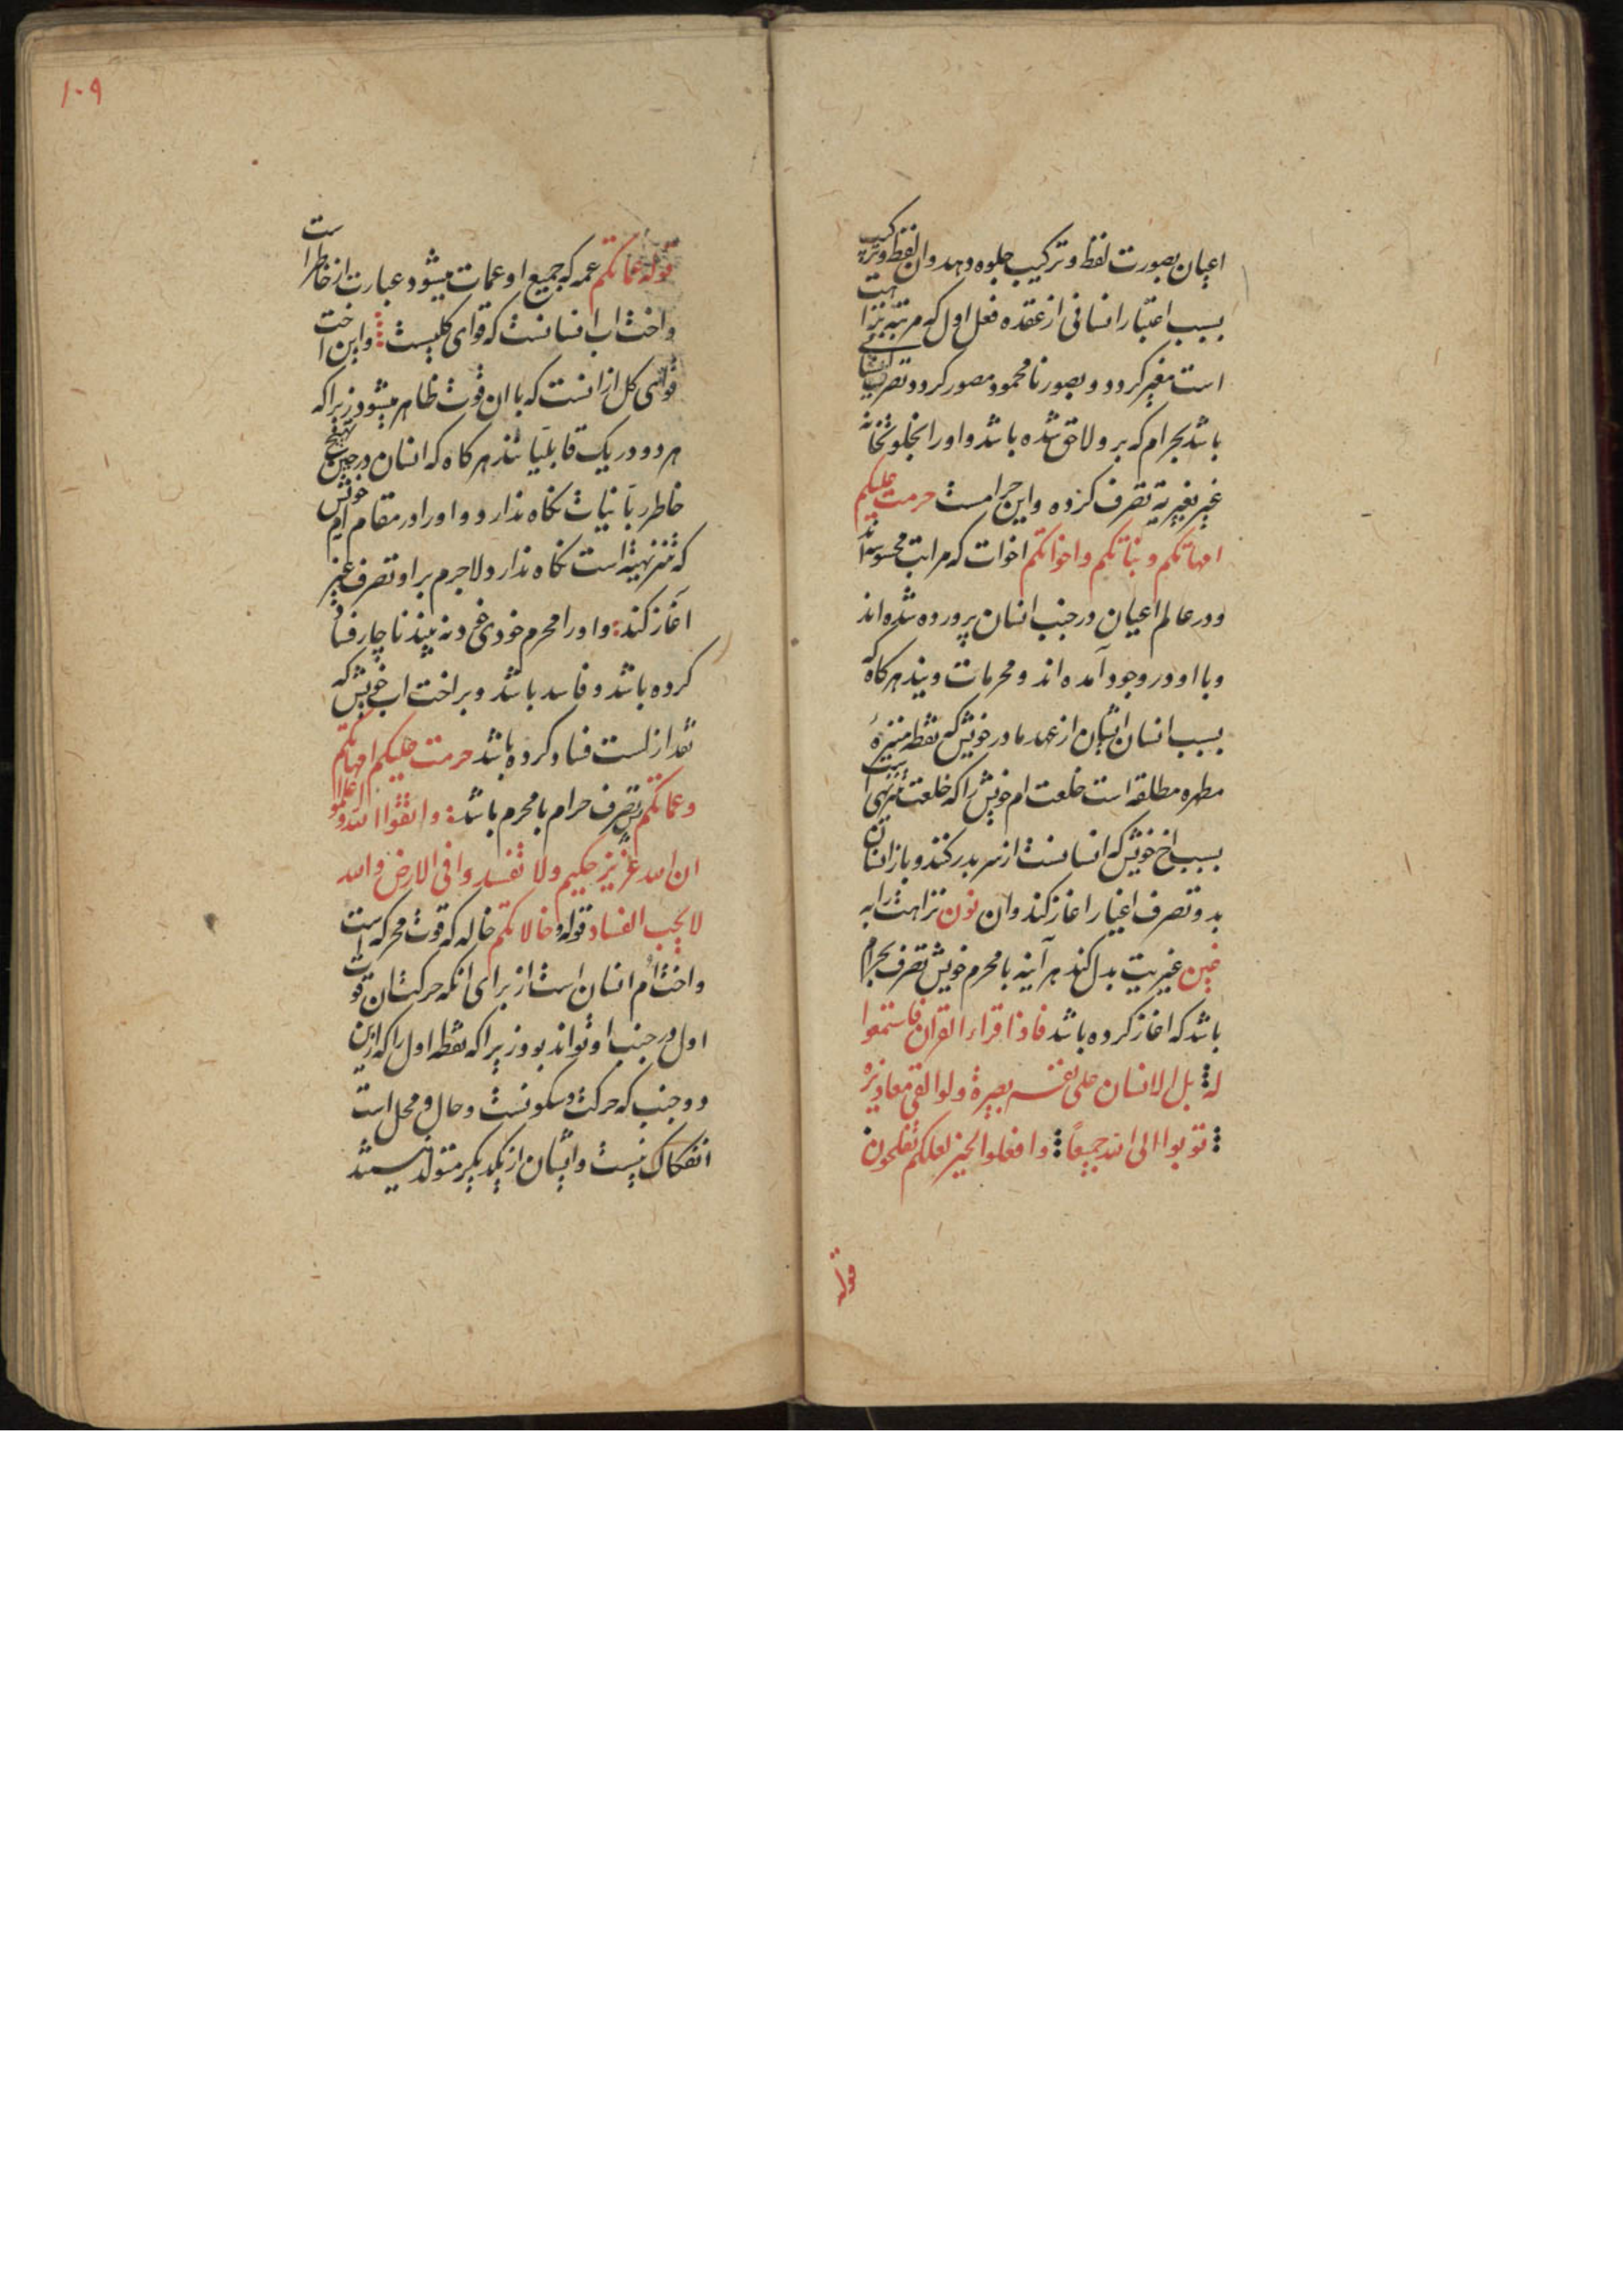 اعیان بصورت لفظ و ترکیب جلوه دهد وان لفظ و ترکیب
بسبب اعتبار انسانی از عقده فعل اول که مرتبه نزاهت
است مغیر کردد و بصور نامحمود مصور کردد و تصرف
باشد بحرام که برو لاحق شده باشد و اورا بخلوتخانه
غیر بغیریه تصرف کرده واین حرامست حرمت علیکم
امهاتکم وبناتکم واخواتکم اخوات که مراتب محسوسه اند
ودر عالم اعیان در جنب انسان پرورده شده اند
وبا او در وجود آمده اند ومحرمات ویند هرکاه که
بسبب انسان ایشان از عهد مادر خویش که نقطه منزهٔ
مطهره مطلقه است خلعت ام خویش را که خلعت تنزیهیت
بسبب اخ خویش که انسانست از سر بدر کنند وباز انسان
بدو تصرف اغیار اغاز کند وان نون نزاهت را به
غین غیریت بدل کند هر آینه با محرم خویش تصرف بحرام
باشد که اغاز کرده باشد فاذا قراء القران فاستمعوا
له بل الانسان علی نفسه بصیرة ولو القی معاذیره
توبوا الی الله جمیعاً وافعلوا الخیر لعلکم تفلحون
قوله
۱۰۹
قوله عماتکم عمه که جمیع او عمات میشود عبارت از خاطر است
واخت اب انسانست که قوای کلیست واین اخت
قوای کل ازانست که باان قوت ظاهر میشود زیرا که
هر دو در یک قابلیاتند هرکاه که انسان در حین
خاطر ربانیات نکاه ندارد و اورا در مقام ام خویش
که تنزیهیة است نکاه ندارد لاجرم براو تصرف غیر
آغاز کند واورا محرم خودی خود نه بیند ناچار فساد
کرده باشد وفاسد باشد وبر اخت اب خویش که
نقد از لست فساد کرده باشد حرمت علیکم امهاتکم
وعماتکم پس تصرف حرام با محرم باشد واتقوا الله واعلموا
ان الله عزیز حکیم ولا تفسدوا فی الارض والله
لا یحب الفساد قوله وخالاتکم خاله که قوت محرکه است
واخت ام انسان است از برای انکه حرکت ان قوت
اول در جنب او تواند بود زیرا که نقطه اول را که ازین
دو جنب که حرکت وسکونست وحال ومحل است
انفکاک نیست وایشان از یکدیکر متولد نیستند